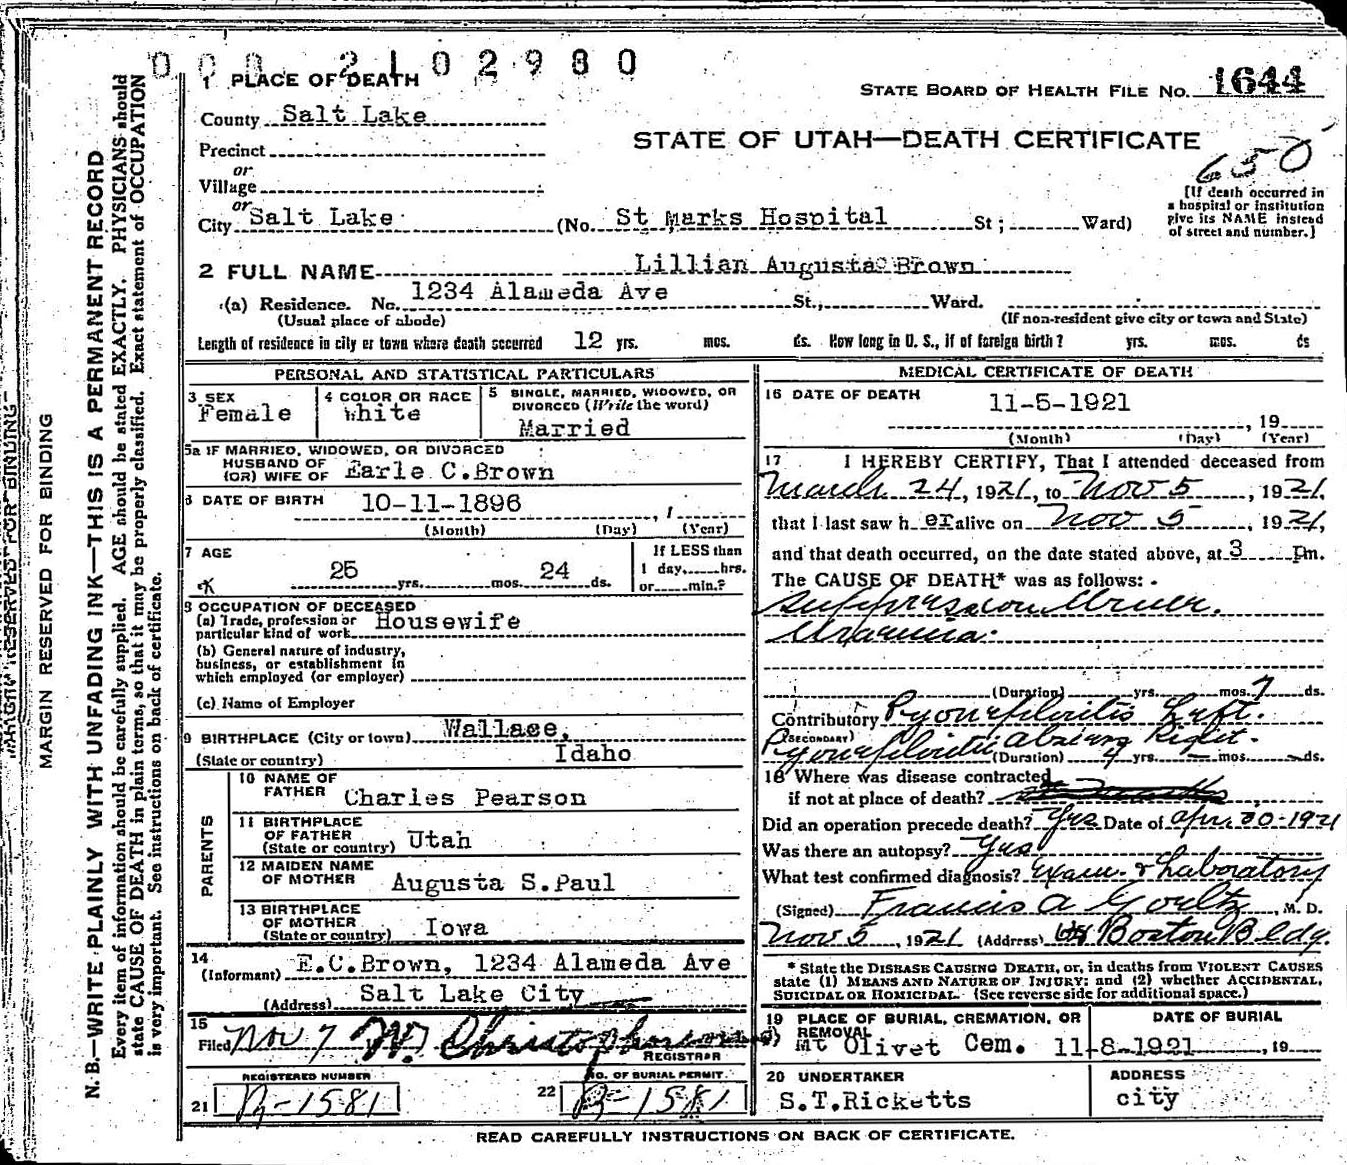 0002102980
1 PLACE OF DEATH
STATE BOARD OF HEALTH FILE No. 1644
County Salt Lake
STATE OF UTAH—DEATH CERTIFICATE
650
Precinct
or
Village
or
City Salt Lake (No. St Marks Hospital St ; Ward)
[If death occurred in
a hospital or institution
give its NAME instead
of street and number.]
2 FULL NAME Lillian Augusta Brown
(a) Residence. No. 1234 Alameda Ave St., Ward.
(Usual place of abode) (If non-resident give city or town and State)
Length of residence in city or town where death occurred 12 yrs. mos. ds. How long in U. S., if of foreign birth? yrs. mos. ds
PERSONAL AND STATISTICAL PARTICULARS
3 SEX
Female
4 COLOR OR RACE
White
5 SINGLE, MARRIED, WIDOWED, OR
DIVORCED (Write the word)
Married
5a IF MARRIED, WIDOWED, OR DIVORCED
HUSBAND OF
(OR) WIFE OF Earle C.Brown
6 DATE OF BIRTH 10-11-1896
(Month) (Day) (Year)
7 AGE
25 yrs. mos. 24 ds.
If LESS than
1 day, hrs.
or min.?
8 OCCUPATION OF DECEASED
(a) Trade, profession or
particular kind of work Housewife
(b) General nature of industry,
business, or establishment in
which employed (or employer)
(c) Name of Employer
9 BIRTHPLACE (City or town) Wallace,
(State or country) Idaho
PARENTS
10 NAME OF
FATHER Charles Pearson
11 BIRTHPLACE
OF FATHER
(State or country) Utah
12 MAIDEN NAME
OF MOTHER Augusta S.Paul
13 BIRTHPLACE
OF MOTHER
(State or country) Iowa
14
(Informant) E.C.Brown, 1234 Alameda Ave
(Address) Salt Lake City
15
Filed Nov 7 W. Christopherson
REGISTRAR
REGISTERED NUMBER
21 B-1581
NO. OF BURIAL PERMIT
22 B-1581
MEDICAL CERTIFICATE OF DEATH
16 DATE OF DEATH 11-5-1921
, 19
(Month) (Day) (Year)
17 I HEREBY CERTIFY, That I attended deceased from
March 24, 1921, to Nov 5, 1921,
that I last saw her alive on Nov 5, 1921,
and that death occurred, on the date stated above, at 3 pm.
The CAUSE OF DEATH* was as follows:
Suppression Urine.
Uraemia.
(Duration) yrs. mos. 7 ds.
Contributory Pyonephritis Left.
(SECONDARY)
Right.
(Duration) 4 yrs. — mos. — ds.
18 Where was disease contracted
if not at place of death?
Did an operation precede death? Yes Date of Apr. 30-1921
Was there an autopsy? Yes
What test confirmed diagnosis? Exam. & Laboratory
(Signed) Francis A Goeltz, M. D.
Nov 5, 1921 (Address) Boston Bldg.
* State the DISEASE CAUSING DEATH, or, in deaths from VIOLENT CAUSES
state (1) MEANS AND NATURE OF INJURY; and (2) whether ACCIDENTAL,
SUICIDAL OR HOMICIDAL. (See reverse side for additional space.)
19 PLACE OF BURIAL, CREMATION, OR
REMOVAL
Mt Olivet Cem.
DATE OF BURIAL
11-8-1921, 19
20 UNDERTAKER
S.T.Ricketts
ADDRESS
city
READ CAREFULLY INSTRUCTIONS ON BACK OF CERTIFICATE.
MARGIN RESERVED FOR BINDING
MARGIN RESERVED FOR BINDING
N. B.—WRITE PLAINLY WITH UNFADING INK—THIS IS A PERMANENT RECORD
Every item of information should be carefully supplied. AGE should be stated EXACTLY. PHYSICIANS should
state CAUSE OF DEATH in plain terms, so that it may be properly classified. Exact statement of OCCUPATION
is very important. See instructions on back of certificate.